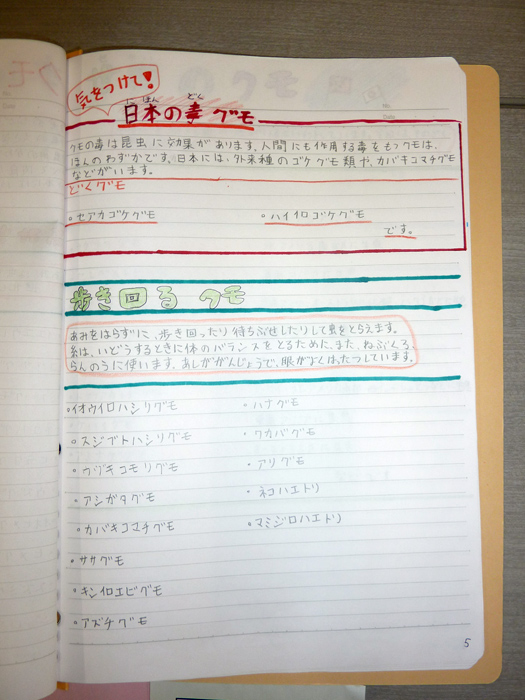 気をつけて!
にほん どく
日本の毒グモ
クモの毒は昆虫に効果があります。人間にも作用する毒をもつクモは、
ほんのわずかです。日本には、外来種のゴケグモ類や、カバキコマチグモ
などがいます。
どくグモ
・セアカゴケグモ ・ハイイロゴケグモ
です。
歩き回るクモ
あみをはらずに、歩き回ったり待ちぶせしたりして虫をとらえます。
糸は、いどうするときに体のバランスをとるため、また、ねぶくろ、
らんのうに使います。あしががんじょうで、眼がよくはったつしています。
・イオウイロハシリグモ ・ハナグモ
・スジブトハシリグモ ・ワカバグモ
・ウヅキコモリグモ ・アリグモ
・アシダカグモ ・ネコハエトリ
・カバキコマチグモ ・マミジロハエトリ
・ササグモ
・キンイロエビグモ
・アズチグモ
5